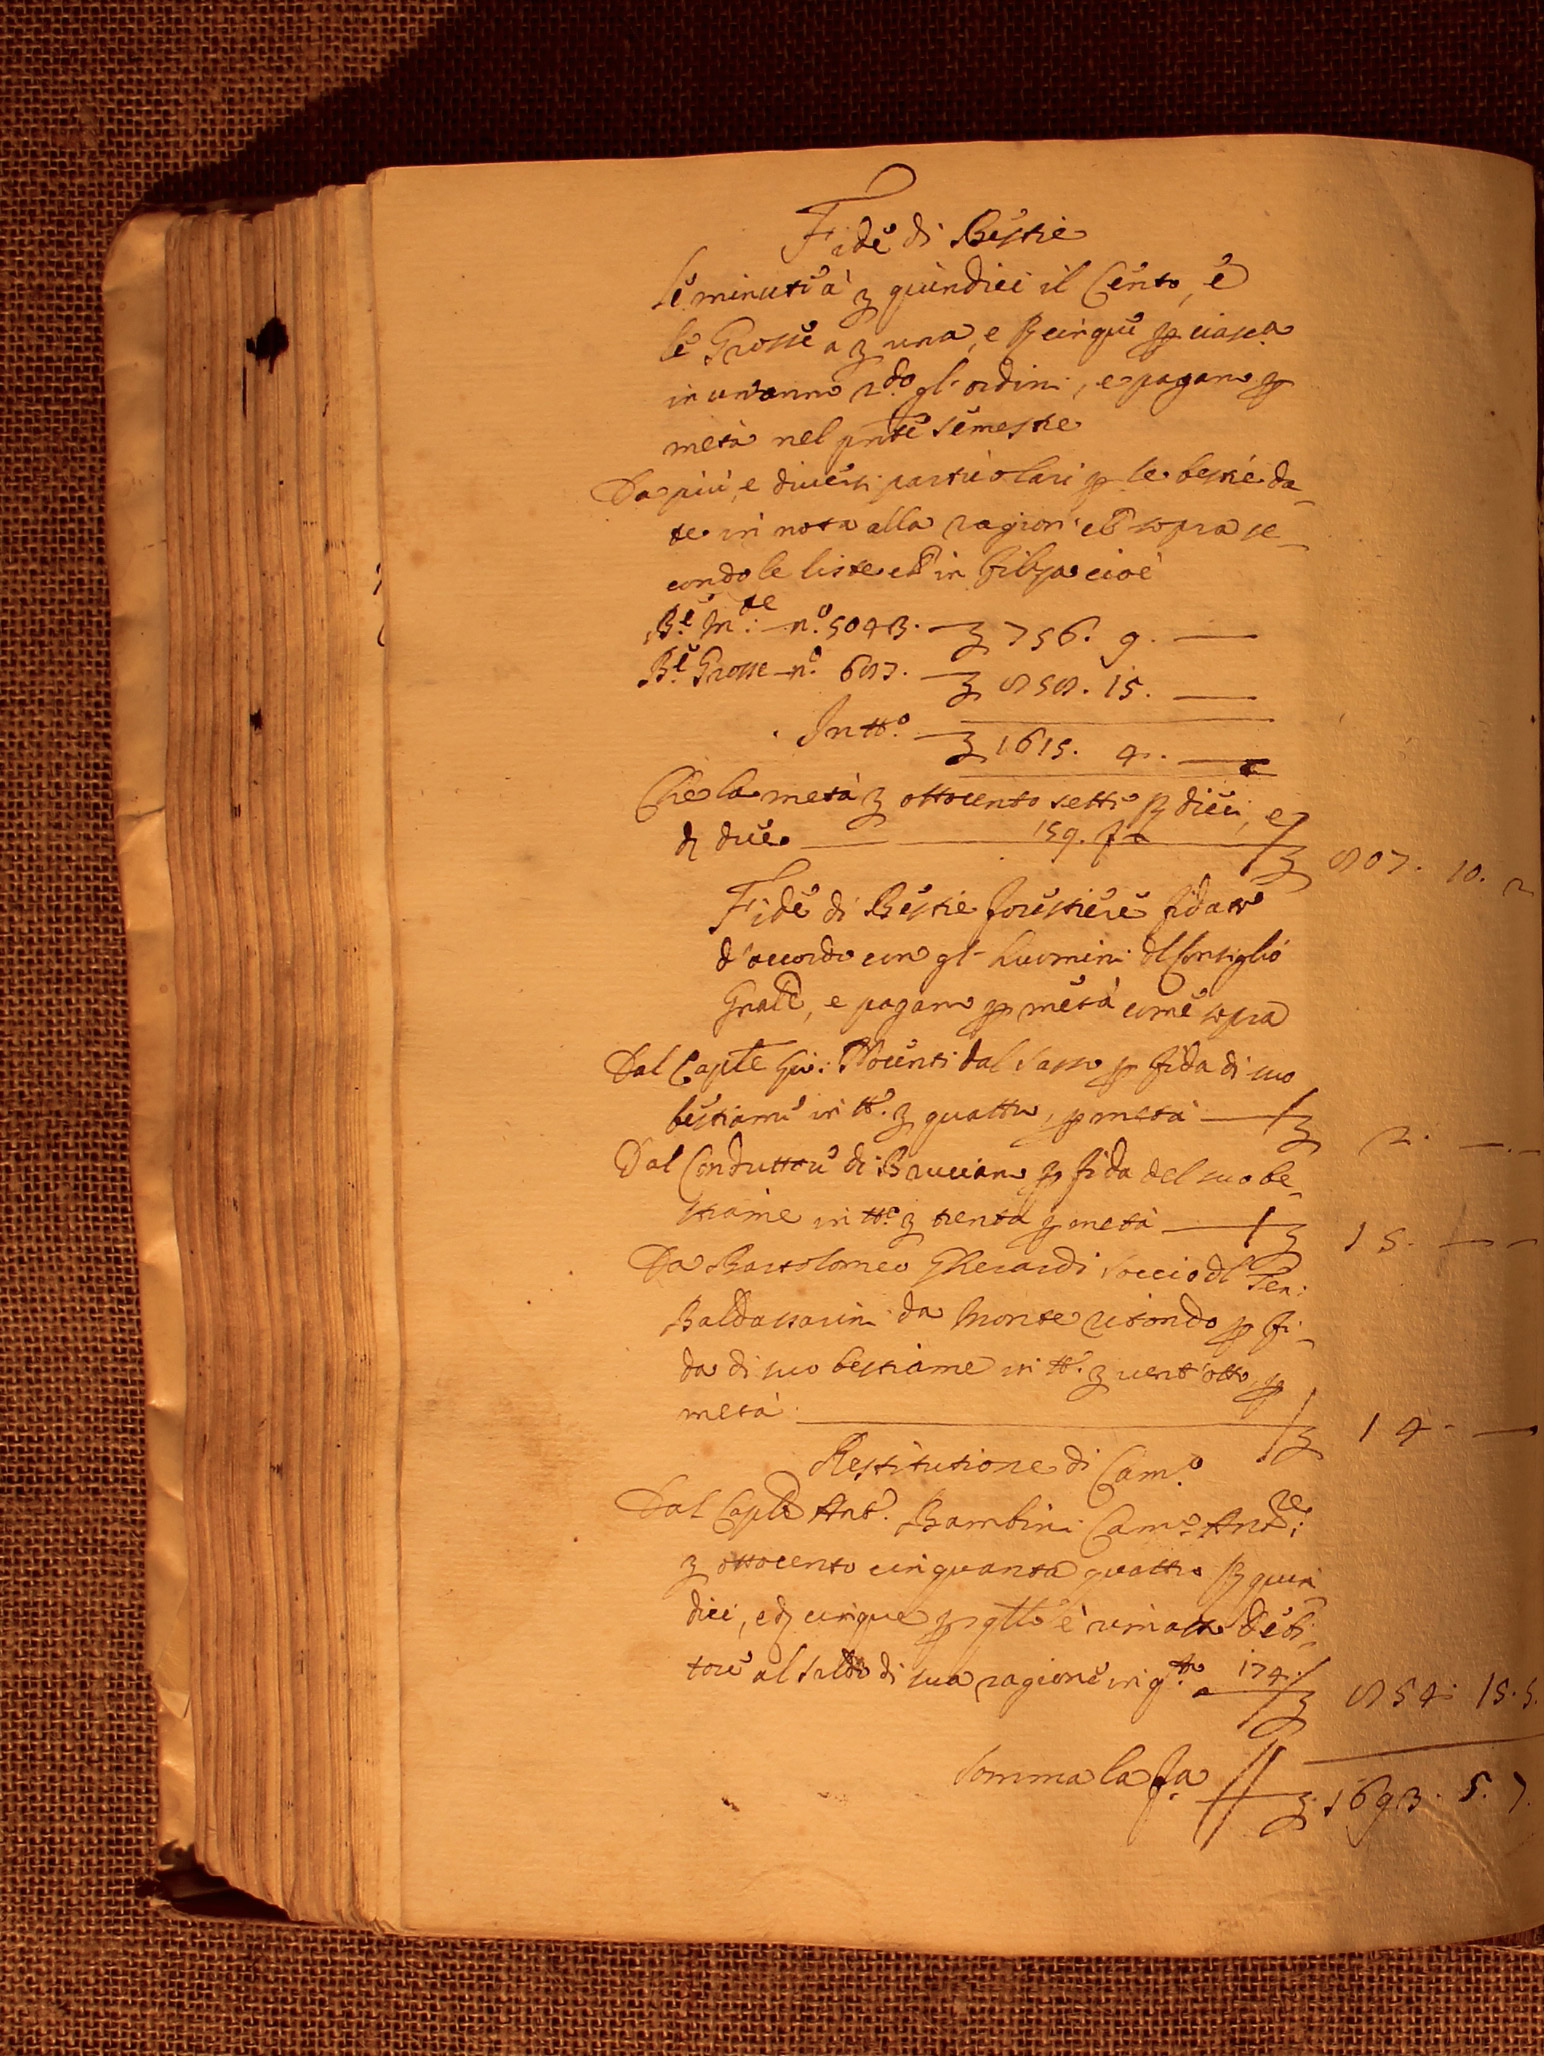 Fide di Bestie
le minute à ʒ quindici il Cento, e
le Grosse a ʒ una, e ẞ cinque p ciasc.a
in un'anno 2.do gl' ordini, e pagano p
metà nel pnte semestre
Da più, e diversi particolari p le bestie da-
te in nota alla ragion' ed sopra se-
condo le liste ed in filza cioè
B.e M.te n.o 5043. — ʒ 756. 9. —
B.e Grosse n.o 687. — ʒ 858. 15. —
In tt.o — ʒ 1615. 4. —
Che la metà ʒ ottocento sette ẞ dieci, e
d due — 159. — ʒ 807. 10. 2
Fide di Bestie forestiere fidate
d'accordo con gl' huomini dl Consiglio
Gnale, e pagano p metà come sopra
Dal Capte Gio: Nocenti dal Sasso p fida di suo
bestiame in tt.o ʒ quattro, p metà — ʒ 2. — . —
Dal Conduttore di Brucciano p fida del suo be-
stiame in tt.o ʒ trenta p metà — ʒ 15. — —
Da Bartolomeo Gherardi soccio dl Ten:
Baldassarini da Monte ritondo p fi-
da di suo bestiame in tt.o ʒ vent'otto, p
metà — ʒ 14. —
Restitutione di Cam.o
Dal Capte Ant.o Bambini Cam.o Antte:
ʒ ottocento cinquanta quattro ẞ quin-
dici, e d cinque p qtto è rimasto debi-
tore al saldo di sua ragione in q.to 174. — ʒ 854: 15. 5.
Somma la fa — ʒ 1693. 5. 7.